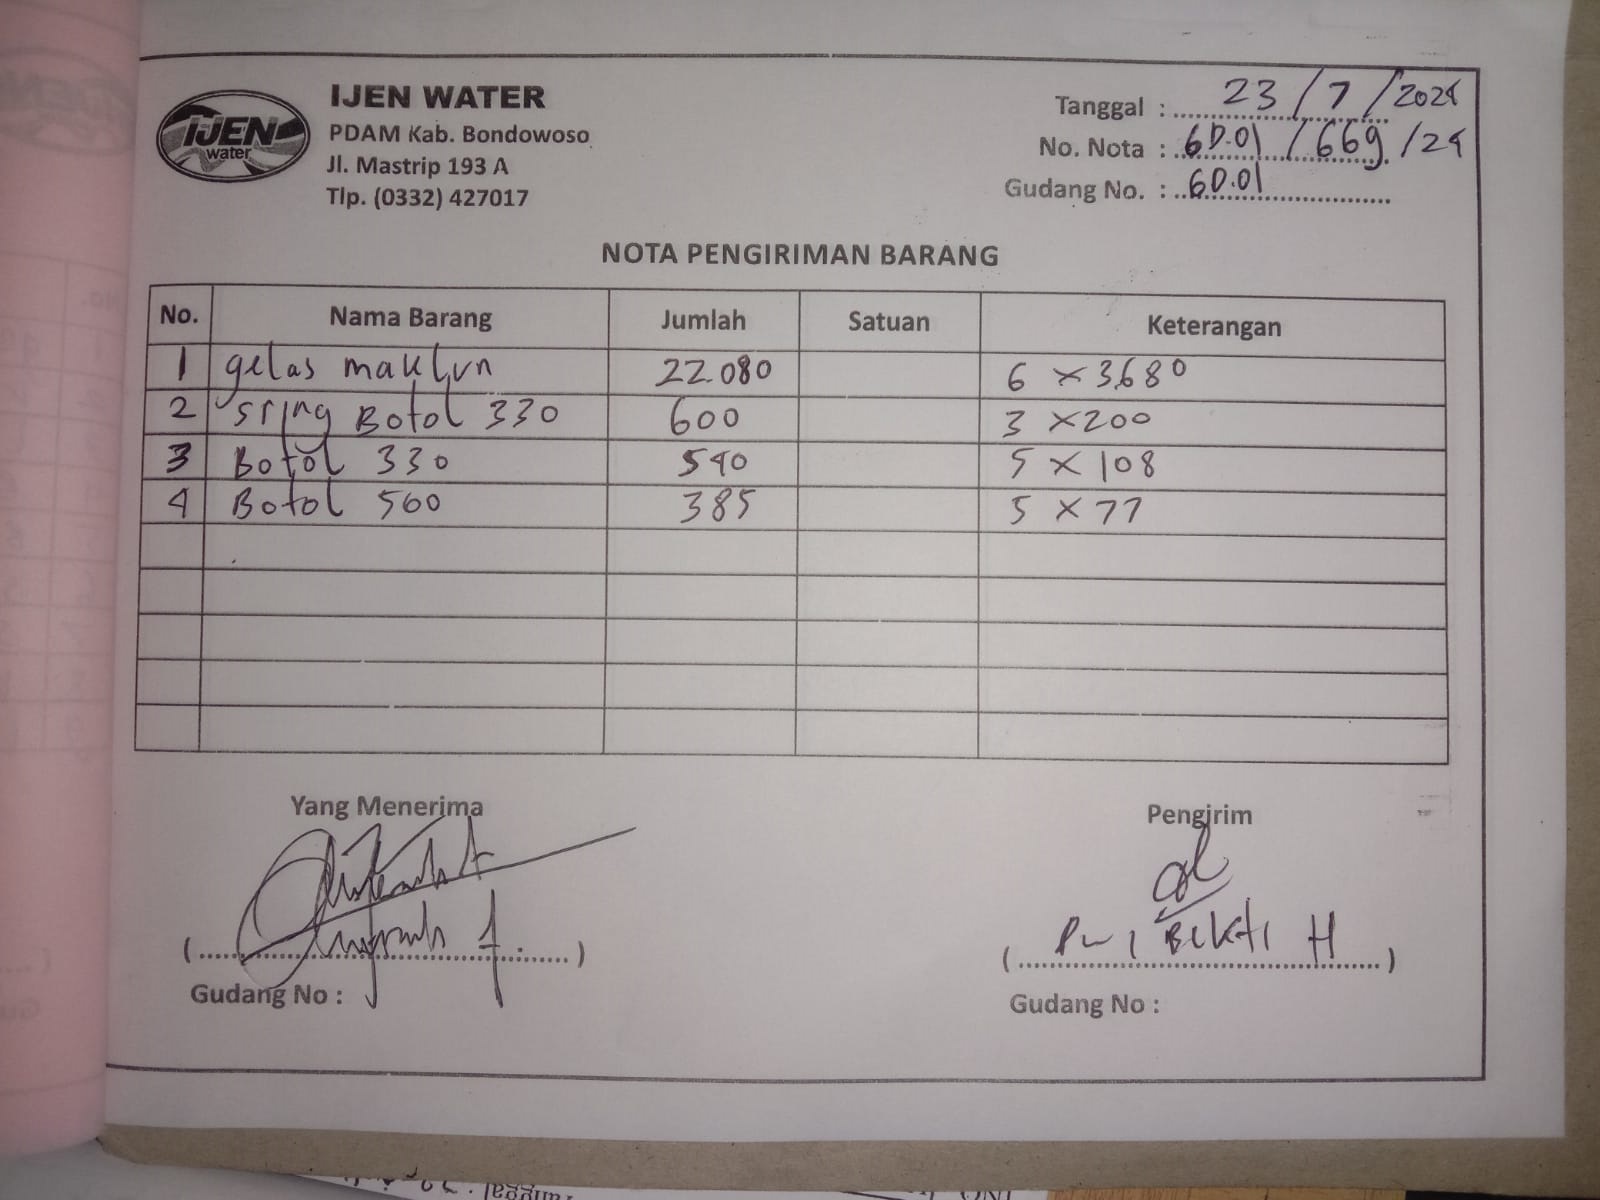 IJEN
water
IJEN WATER
PDAM Kab. Bondowoso
Jl. Mastrip 193 A
Tlp. (0332) 427017
Tanggal : 23 / 7 / 2024
No. Nota : GD.01 / 669 / 24
Gudang No. : GD.01
NOTA PENGIRIMAN BARANG
No. Nama Barang Jumlah Satuan Keterangan
1 gelas maklun 22.080 6 x 3.680
2 sring Botol 330 600 3 x 200
3 Botol 330 540 5 x 108
4 Botol 560 385 5 x 77
Yang Menerima Pengirim
Bekti H
Gudang No : Gudang No :